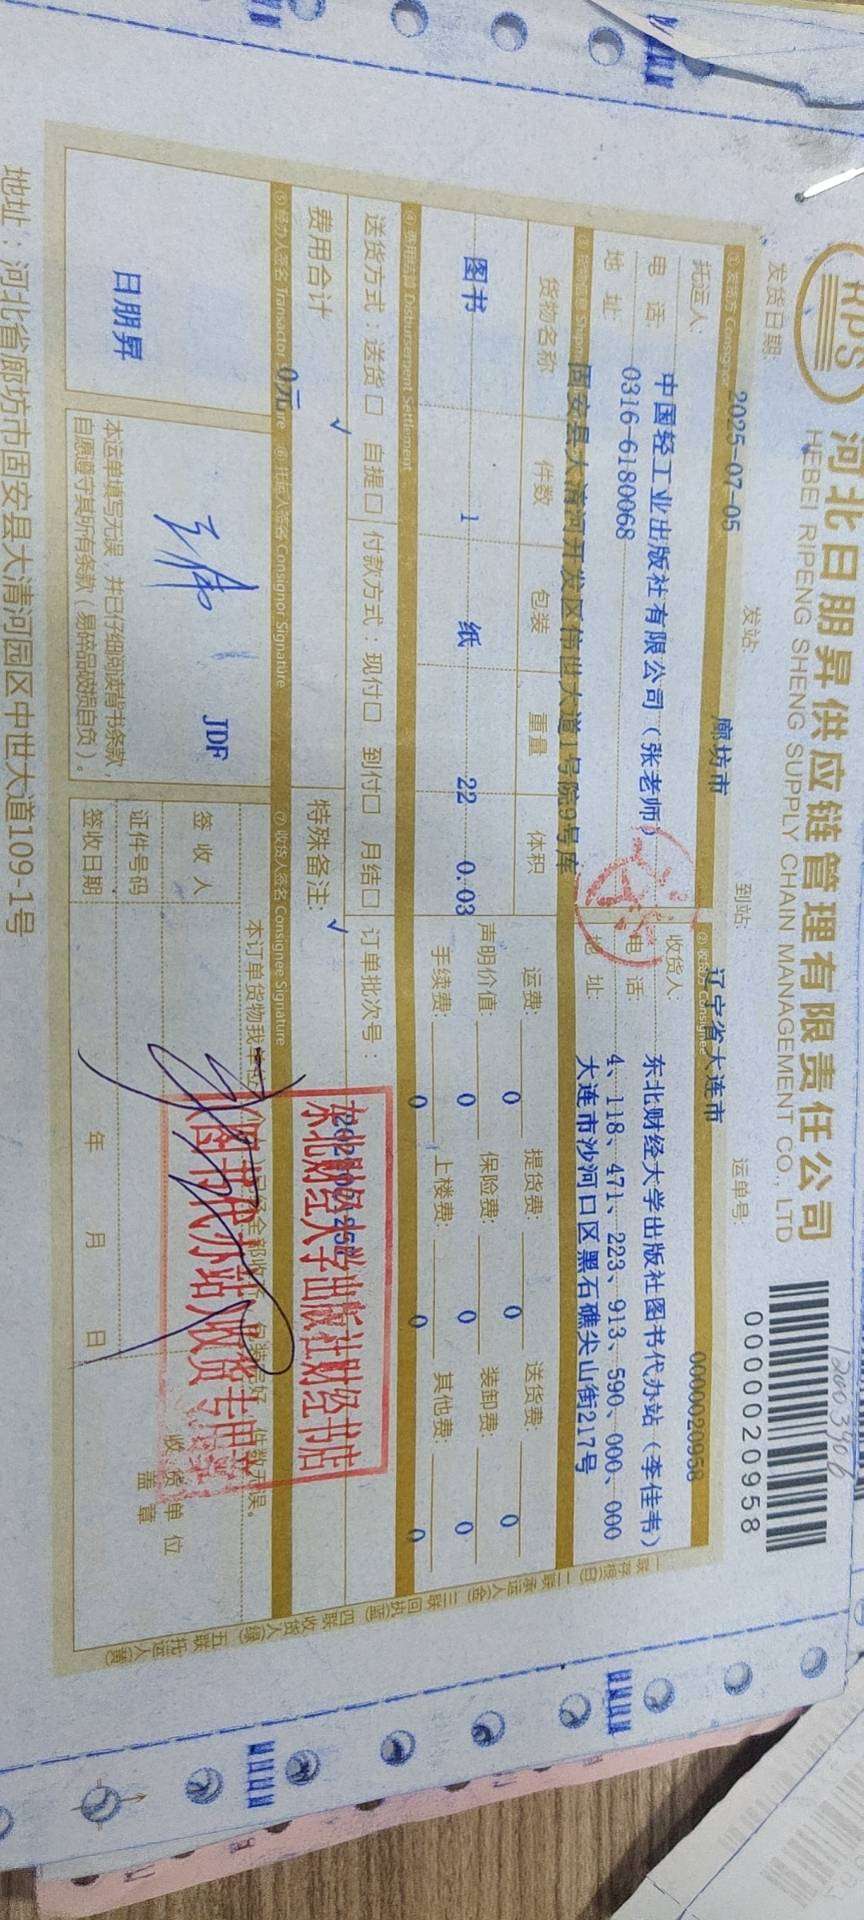 RPS
河北日朋昇供应链管理有限责任公司
HEBEI RIPENG SHENG SUPPLY CHAIN MANAGEMENT CO., LTD
0000020958
发货日期: 2025-07-05 发站: 廊坊市 到站: 辽宁省大连市 运单号: 0000020958
托运人: 中国轻工业出版社有限公司（张老师）
电话: 0316-6180068
地址: 固安县大清河开发区伟世大道1号院9号库
收货人: 东北财经大学出版社图书代办站（李佳韦）
电话: 4、118、471、223、913、590、000、000
地址: 大连市沙河口区黑石礁尖山街217号
货物名称 件数 包装 重量 体积
图书 1 纸 22 0.03
运费: 0 提货费: 0 送货费: 0
声明价值: 0 保险费: 0 装卸费: 0
手续费: 0 上楼费: 0 其他费: 0
④ 费用结算 Disbursement Settlement
送货方式：送货□ 自提□ √ 付款方式：现付□ 到付□ 月结□ √ 订单批次号：
费用合计 0元 特殊备注:
⑤ 经办人签名 Transactor ⑥ 托运人签名 Consignor Signature ⑦ 收货人签名 Consignee Signature
日朋昇
JDF
本运单填写无误，并已仔细阅读背书条款，
自愿遵守其所有条款（易碎品破损自负）。
本订单货物我单位 全部收 件数无误。
签收人
证件号码
签收日期 年 月 日
收货单位
盖章
东北财经大学出版社财经书店
（图书代办站）收货专用
地址：河北省廊坊市固安县大清河园区中世大道109-1号